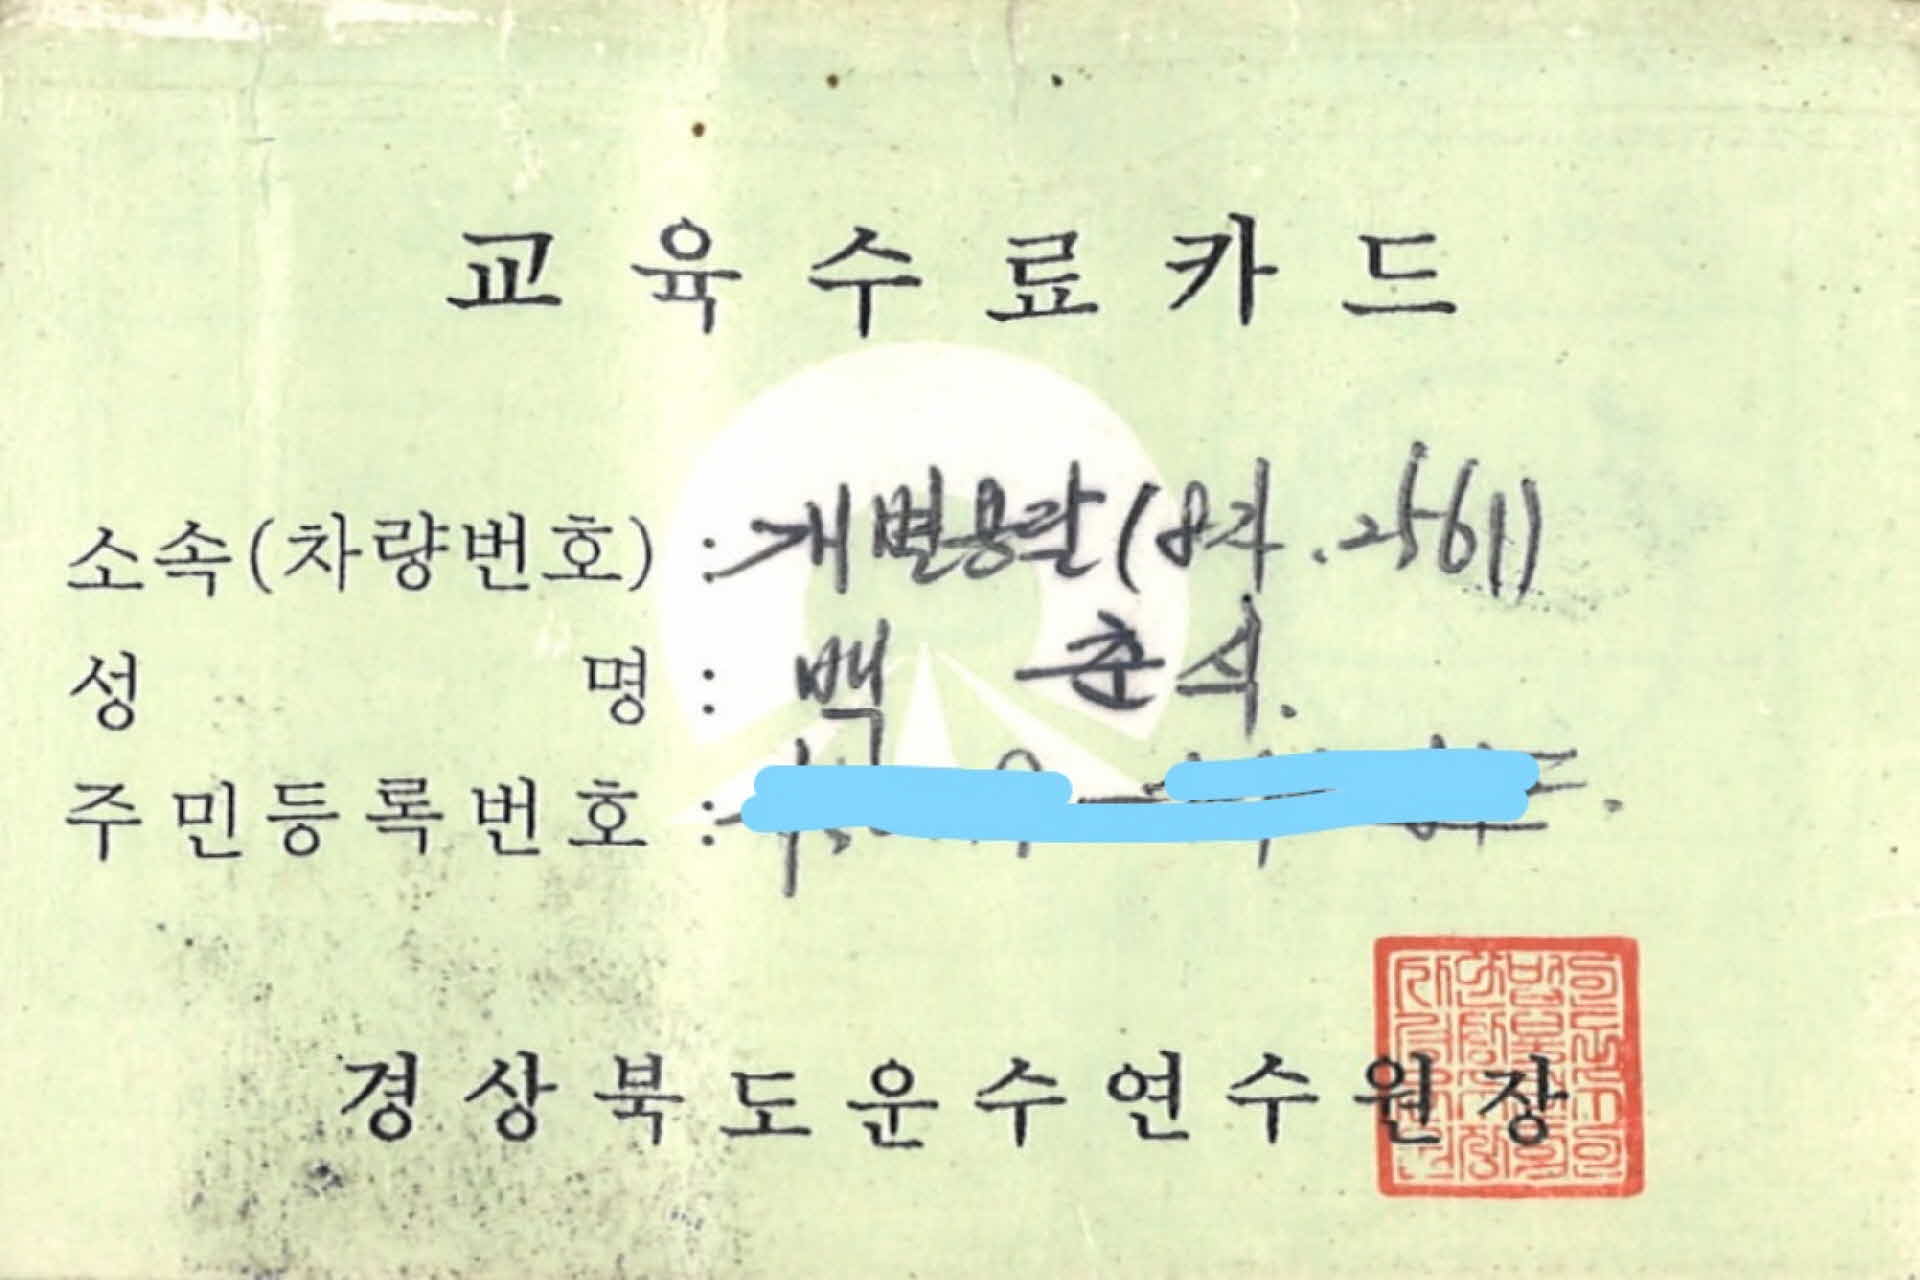 교육수료카드
소속(차량번호) : 개별용달(8자.2561)
성 명 : 백 춘식.
주민등록번호 :
경상북도운수연수원장